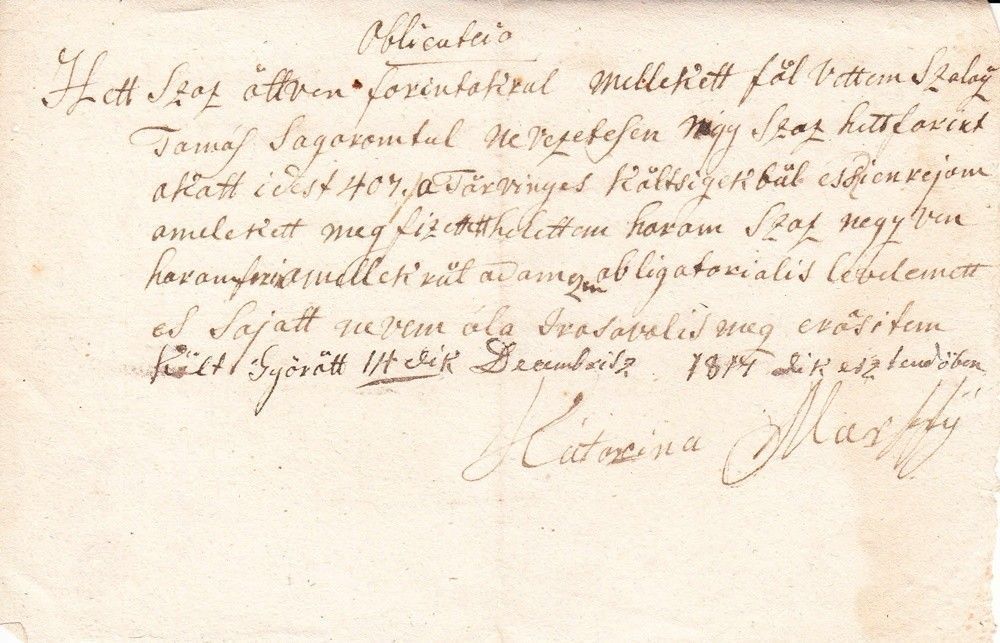 Oblicatcio
Hett Szaz ättven forintakrul mellekett föl Vettem Szalaÿ
Tamás Sogoromtul nevezetesen nigy Szaz hett forint
okatt idest 407 a Törvinyes költsigekbül es
amelekett meg fizetett helettem harom Szaz negyven
harom amellekrül adom obligatorialis levelemett
es Sajatt nevem ala Irasavalis meg erösitem
költ Györätt 14 dik Decembrisz 1817 dik esztendöben
Kátarina Marffÿ